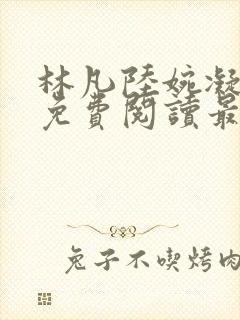 林凡陸婉凝
免費閱讀最
兔子不喫烤肉